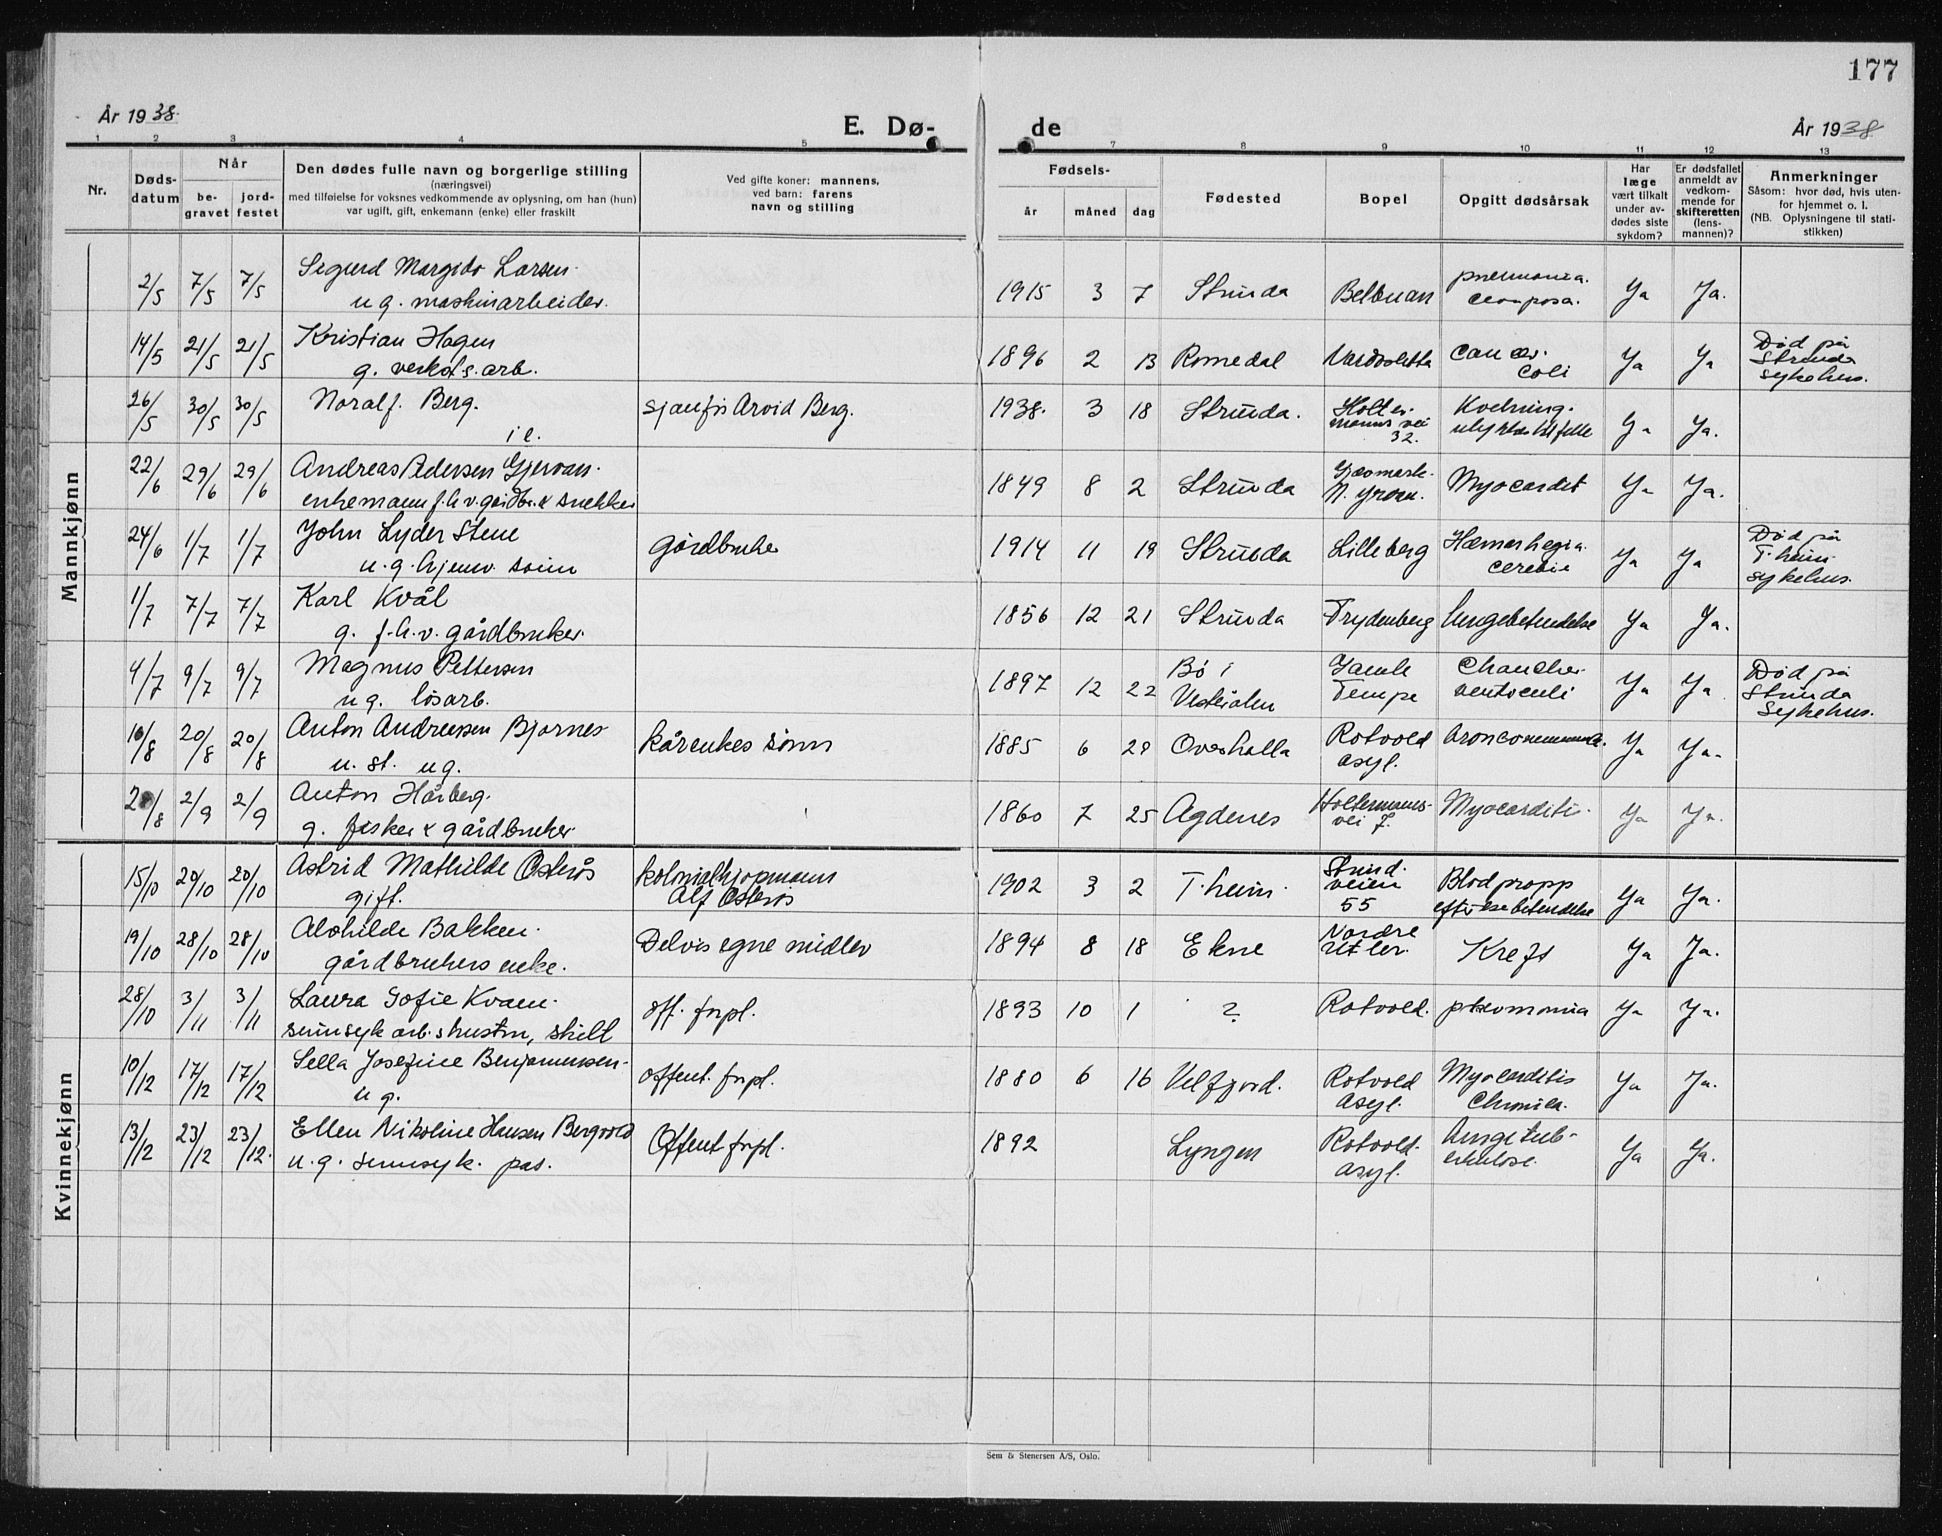 177
År 1938.
E. Dø-
de
År 1938
1 2 3 4 5 7 8 9 10 11 12 13
Nr.
Døds-
datum
Når
be-
gravet
jord-
festet
Den dødes fulle navn og borgerlige stilling
(næringsvei)
med tilføielse for voksnes vedkommende av oplysning, om han (hun)
var ugift, gift, enkemann (enke) eller fraskilt
Ved gifte koner: mannens,
ved barn: farens
navn og stilling
Fødsels-
år
måned
dag
Fødested
Bopel
Opgitt dødsårsak
Har
læge
vært tilkalt
under av-
dødes siste
sykdom?
Er dødsfallet
anmeldt av
vedkom-
mende for
skifteretten
(lens-
mannen)?
Anmerkninger
Såsom: hvor død, hvis uten-
for hjemmet o. l.
(NB. Oplysningene til stati-
stikken)
Mannkjønn
2/5 7/5 7/5 Sigurd Margido Larsen
u g. maskinarbeider.
1915 3 7 Strinda Belbuan pneumonia.
Ja Ja.
14/5 21/5 21/5 Kristian Hagen
g. verksts.arb.
1896 2 13 Romedal Vardesletta cancer.
coli
Ja Ja
Død på
Strinda
sykehus.
26/5 30/5 30/5 Noralf. Berg.
sjaufør Arvid Berg.
1938. 3 18 Strinda. Holter-
manns vei
32.
Kvelning.
Ja Ja.
22/6 29/6 29/6 Andreas Pedersen Gjervan.
enkemann f.h.v. gårdbr. & snekker
1849 8 2 Strinda Myocardit
Ja Ja.
24/6 1/7 1/7 John Lyder Stene
u.g. hjemv. sønn
gårdbruker
1914 11 19 Strinda Lilleberg Hæmorhagia
cerebri
Ja Ja
Død på
T.heim
sykehus.
1/7 7/7 7/7 Karl Kvål
g. f.h.v. gårdbruker.
1856 12 21 Strinda Frydenberg Lungebetendelse
Ja Ja.
4/7 9/7 9/7 Magnus Pettersen
ug. løsarb.
1897 12 22 Bø i
Vesterålen
Gamle
Tempe
Ja Ja
Død på
Strinda
Sykehus.
16/8 20/8 20/8 Anton Andreassen Bjørnes
u. st. ug.
kårenkes sønn
1885 6 29 Overhalla Rotvold
asyl.
Ja Ja.
2/8 2/9 2/9 Anton Hårberg.
g. fisker & gårdbruker
1860 7 25 Agdenes Holtermanns-
vei 7.
Myocarditis
Ja Ja.
Kvinnekjønn
15/10 20/10 20/10 Astrid Mathilde Østerås
gift.
kolonialkjøpmann
Alf Østerås
1902 3 2 T.heim. Strind-
veien
55
Blodpropp
efter årebetendelse
Ja Ja.
19/10 28/10 28/10 Alvhilde Bakken.
gårdbrukers enke.
Delvis egne midler
1894 8 18 Ekne Nordre
Utler.
Kreft
Ja Ja.
28/10 3/11 3/11 Laura Sofie Kvam.
sinnsyk arb.s hustru, skilt
off. forpl.
1893 10 1 ? Rotvold. pneumonia
Ja Ja.
10/12 17/12 17/12 Sella Josefine Benjaminsen.
u g.
offent. forpl.
1880 6 16 Velfjord. Rotvold
asyl.
Myocarditis
Chronica.
Ja Ja.
13/12 23/12 23/12. Ellen Nikoline Hansen Bergvold
u. g. sinnsyk. pas.
Offent forpl.
1892 Lyngen Rotvold.
asyl.
Lungetub-
erkulose.
Ja Ja.
Sem & Stenersen A/S, Oslo.